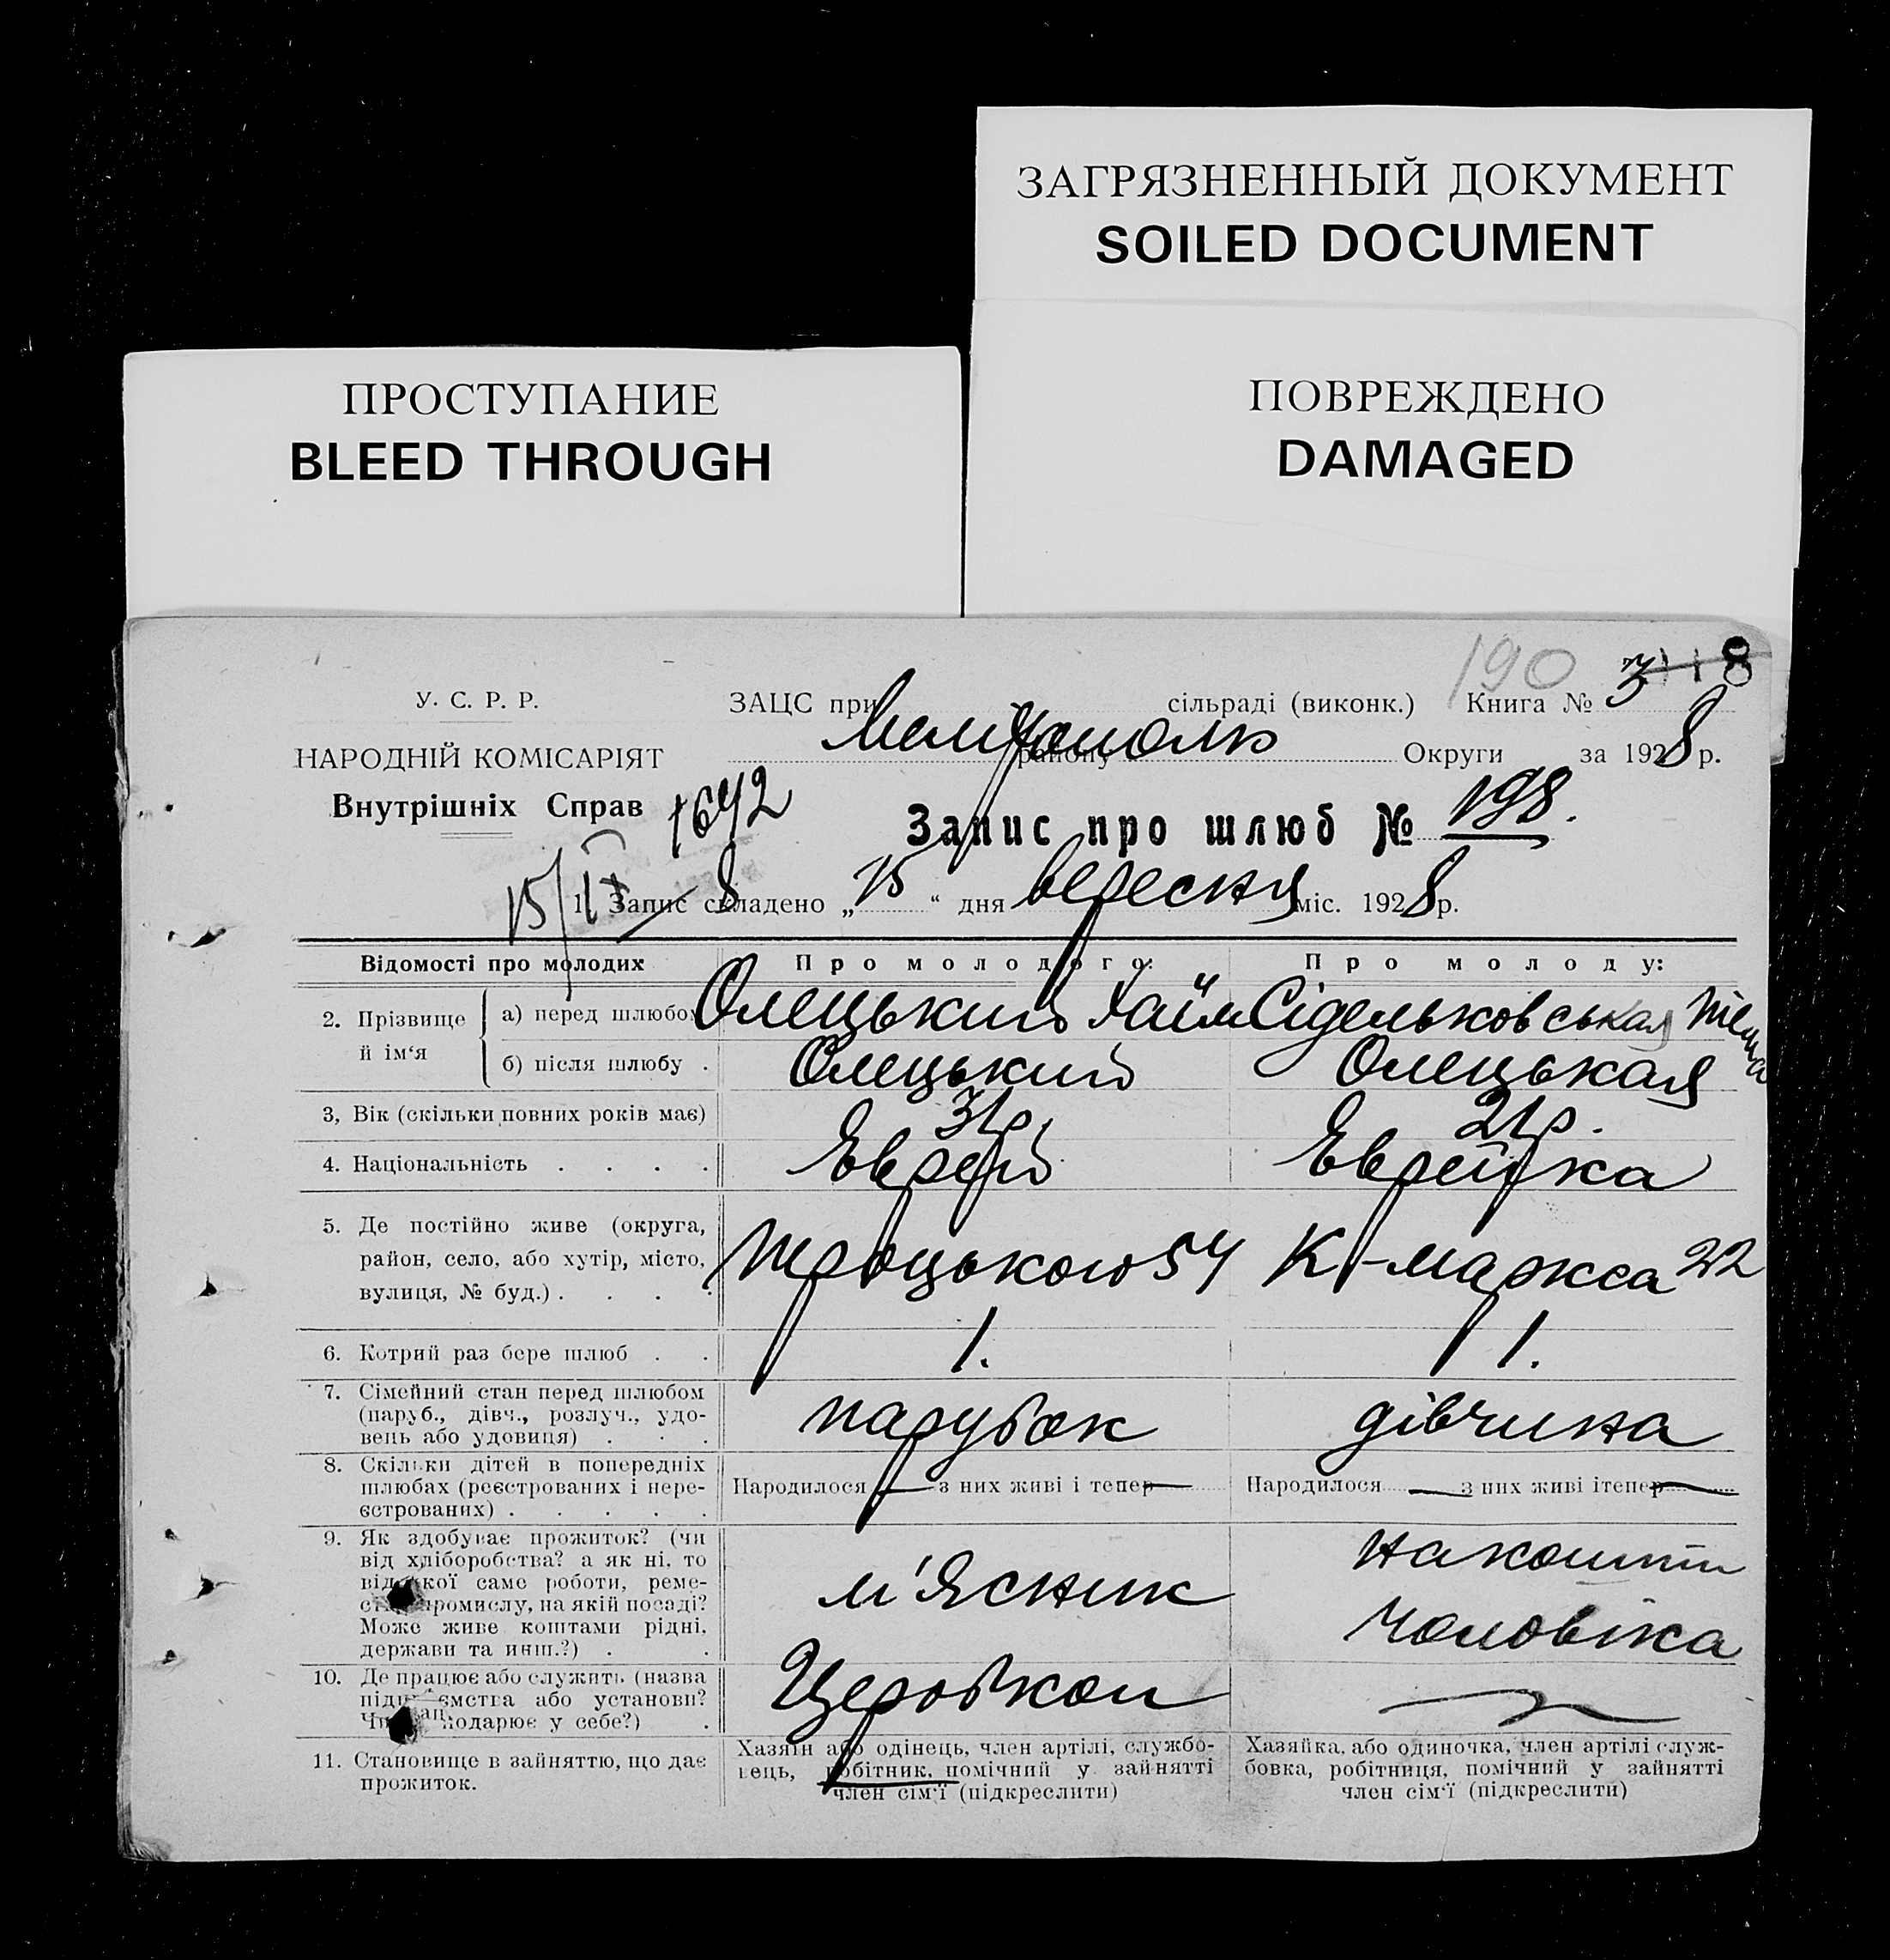 ЗАГРЯЗНЕННЫЙ ДОКУМЕНТ
SOILED DOCUMENT
ПРОСТУПАНИЕ
BLEED THROUGH
ПОВРЕЖДЕНО
DAMAGED
190 3 8
У. С. Р. Р.
ЗАЦС при сільраді (виконк.) Книга №
НАРОДНІЙ КОМІСАРІЯТ
району Округи за 1928 р.
Внутрішніх Справ 1642
Запис про шлюб № 198.
15/IX 8
1. Запис складено „15“ дня вересня міс. 1928 р.
Відомості про молодих Про молодого: Про молоду:
2. Прізвище й ім‘я
а) перед шлюбом Олецький Хаїм Сідельковська
б) після шлюбу . Олецький Олецькая
3, Вік (скільки повних років має) 31р. 21р.
4. Національність . . . . Еврей Еврейка
5. Де постійно живе (округа,
район, село, або хутір, місто,
вулиця, № буд.) . . . . Троцького 54 К-маркса 22
6. Котрий раз бере шлюб . . 1. 1.
7. Сімейний стан перед шлюбом
(паруб., дівч., розлуч., удо-
вець або удовиця) . . . парубок дівчина
8. Скільки дітей в попередніх
шлюбах (реєстрованих і нере-
єстрованих) . . . . . Народилося — з них живі і тепер — Народилося — з них живі ітепер —
9. Як здобуває прожиток? (чи
від хліборобства? а як ні, то
від кої саме роботи, реме-
промислу, на якій посаді?
Може живе коштами рідні,
держави та инш.?) . . м'ясник на кошти чоловіка
10. Де працює або служить (назва
підпр ємства або установи?
Чи подарює у себе?) . Церобкоп —
11. Становище в зайняттю, що дає
прожиток.
Хазяїн або одінець, член артілі, службо-
вець, робітник, помічний у зайнятті
член сім‘ї (підкреслити)
Хазяйка, або одиночка, член артілі служ-
бовка, робітниця, помічний у зайнятті
член сім‘ї (підкреслити)